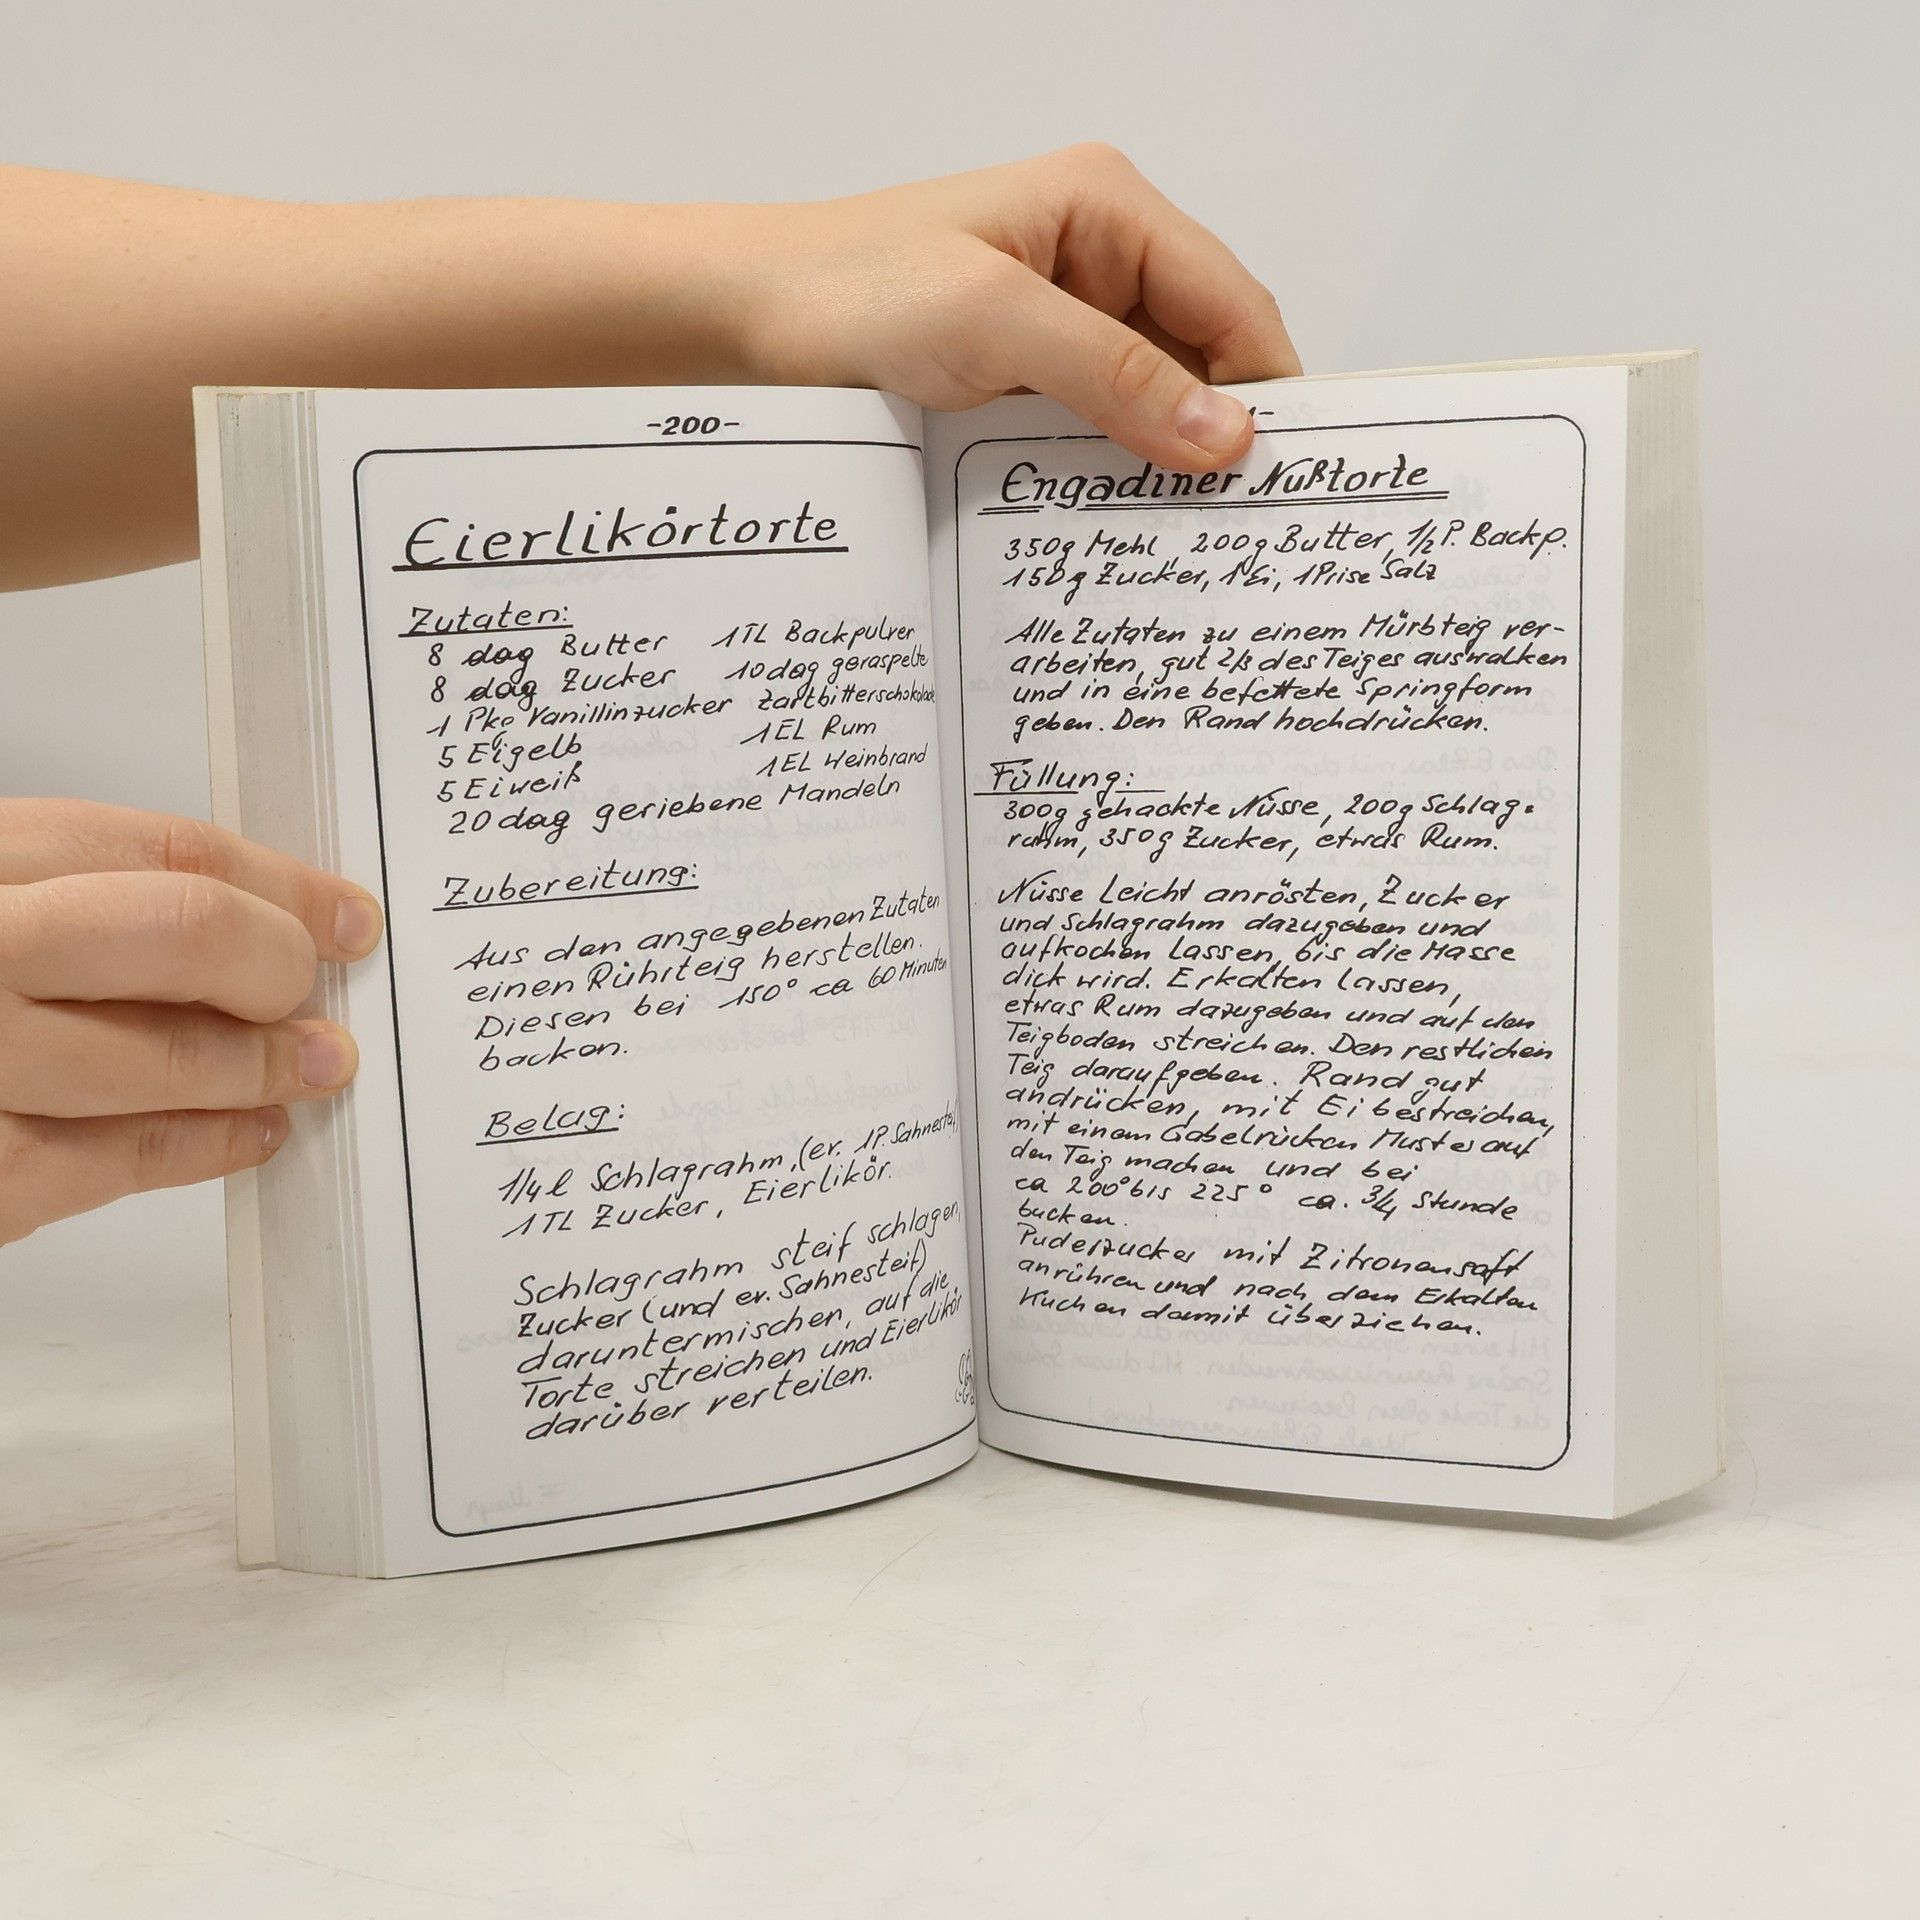 -200-
Eierlikörtorte
Zutaten:
8 dag Butter 1TL Backpulver
8 dag Zucker 10 dag geraspelte
1 Pkg Vanillinzucker Zartbitterschokolade
5 Eigelb 1EL Rum
5 Eiweiß 1EL Weinbrand
20 dag geriebene Mandeln
Zubereitung:
Aus den angegebenen Zutaten
einen Rührteig herstellen.
Diesen bei 150° ca 60 Minuten
backen.
Belag:
1/4 l Schlagrahm, (ev. 1P. Sahnesteif)
1TL Zucker, Eierlikör.
Schlagrahm steif schlagen,
Zucker (und ev. Sahnesteif)
daruntermischen, auf die
Torte streichen und Eierlikör
darüber verteilen.
1-
Engadiner Nußtorte
350g Mehl, 200g Butter, 1/2 P. Backp.
150g Zucker, 1 Ei, 1 Prise Salz
Alle Zutaten zu einem Mürbteig ver-
arbeiten, gut 2/3 des Teiges auswalken
und in eine befettete Springform
geben. Den Rand hochdrücken.
Füllung:
300g gehackte Nüsse, 200g Schlag-
rahm, 350g Zucker, etwas Rum.
Nüsse leicht anrösten, Zucker
und Schlagrahm dazugeben und
aufkochen lassen, bis die Masse
dick wird. Erkalten lassen,
etwas Rum dazugeben und auf den
Teigboden streichen. Den restlichen
Teig daraufgeben. Rand gut
andrücken, mit Ei bestreichen,
mit einem Gabelrücken Muster auf
den Teig machen und bei
ca 200° bis 225° ca. 3/4 Stunde
backen.
Puderzucker mit Zitronensaft
anrühren und nach dem Erkalten
Kuchen damit überziehen.